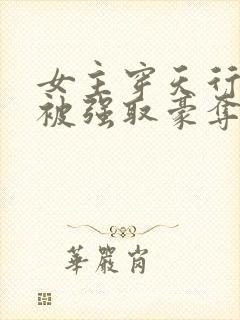 女主穿天行
被强取豪夺
華嚴肖